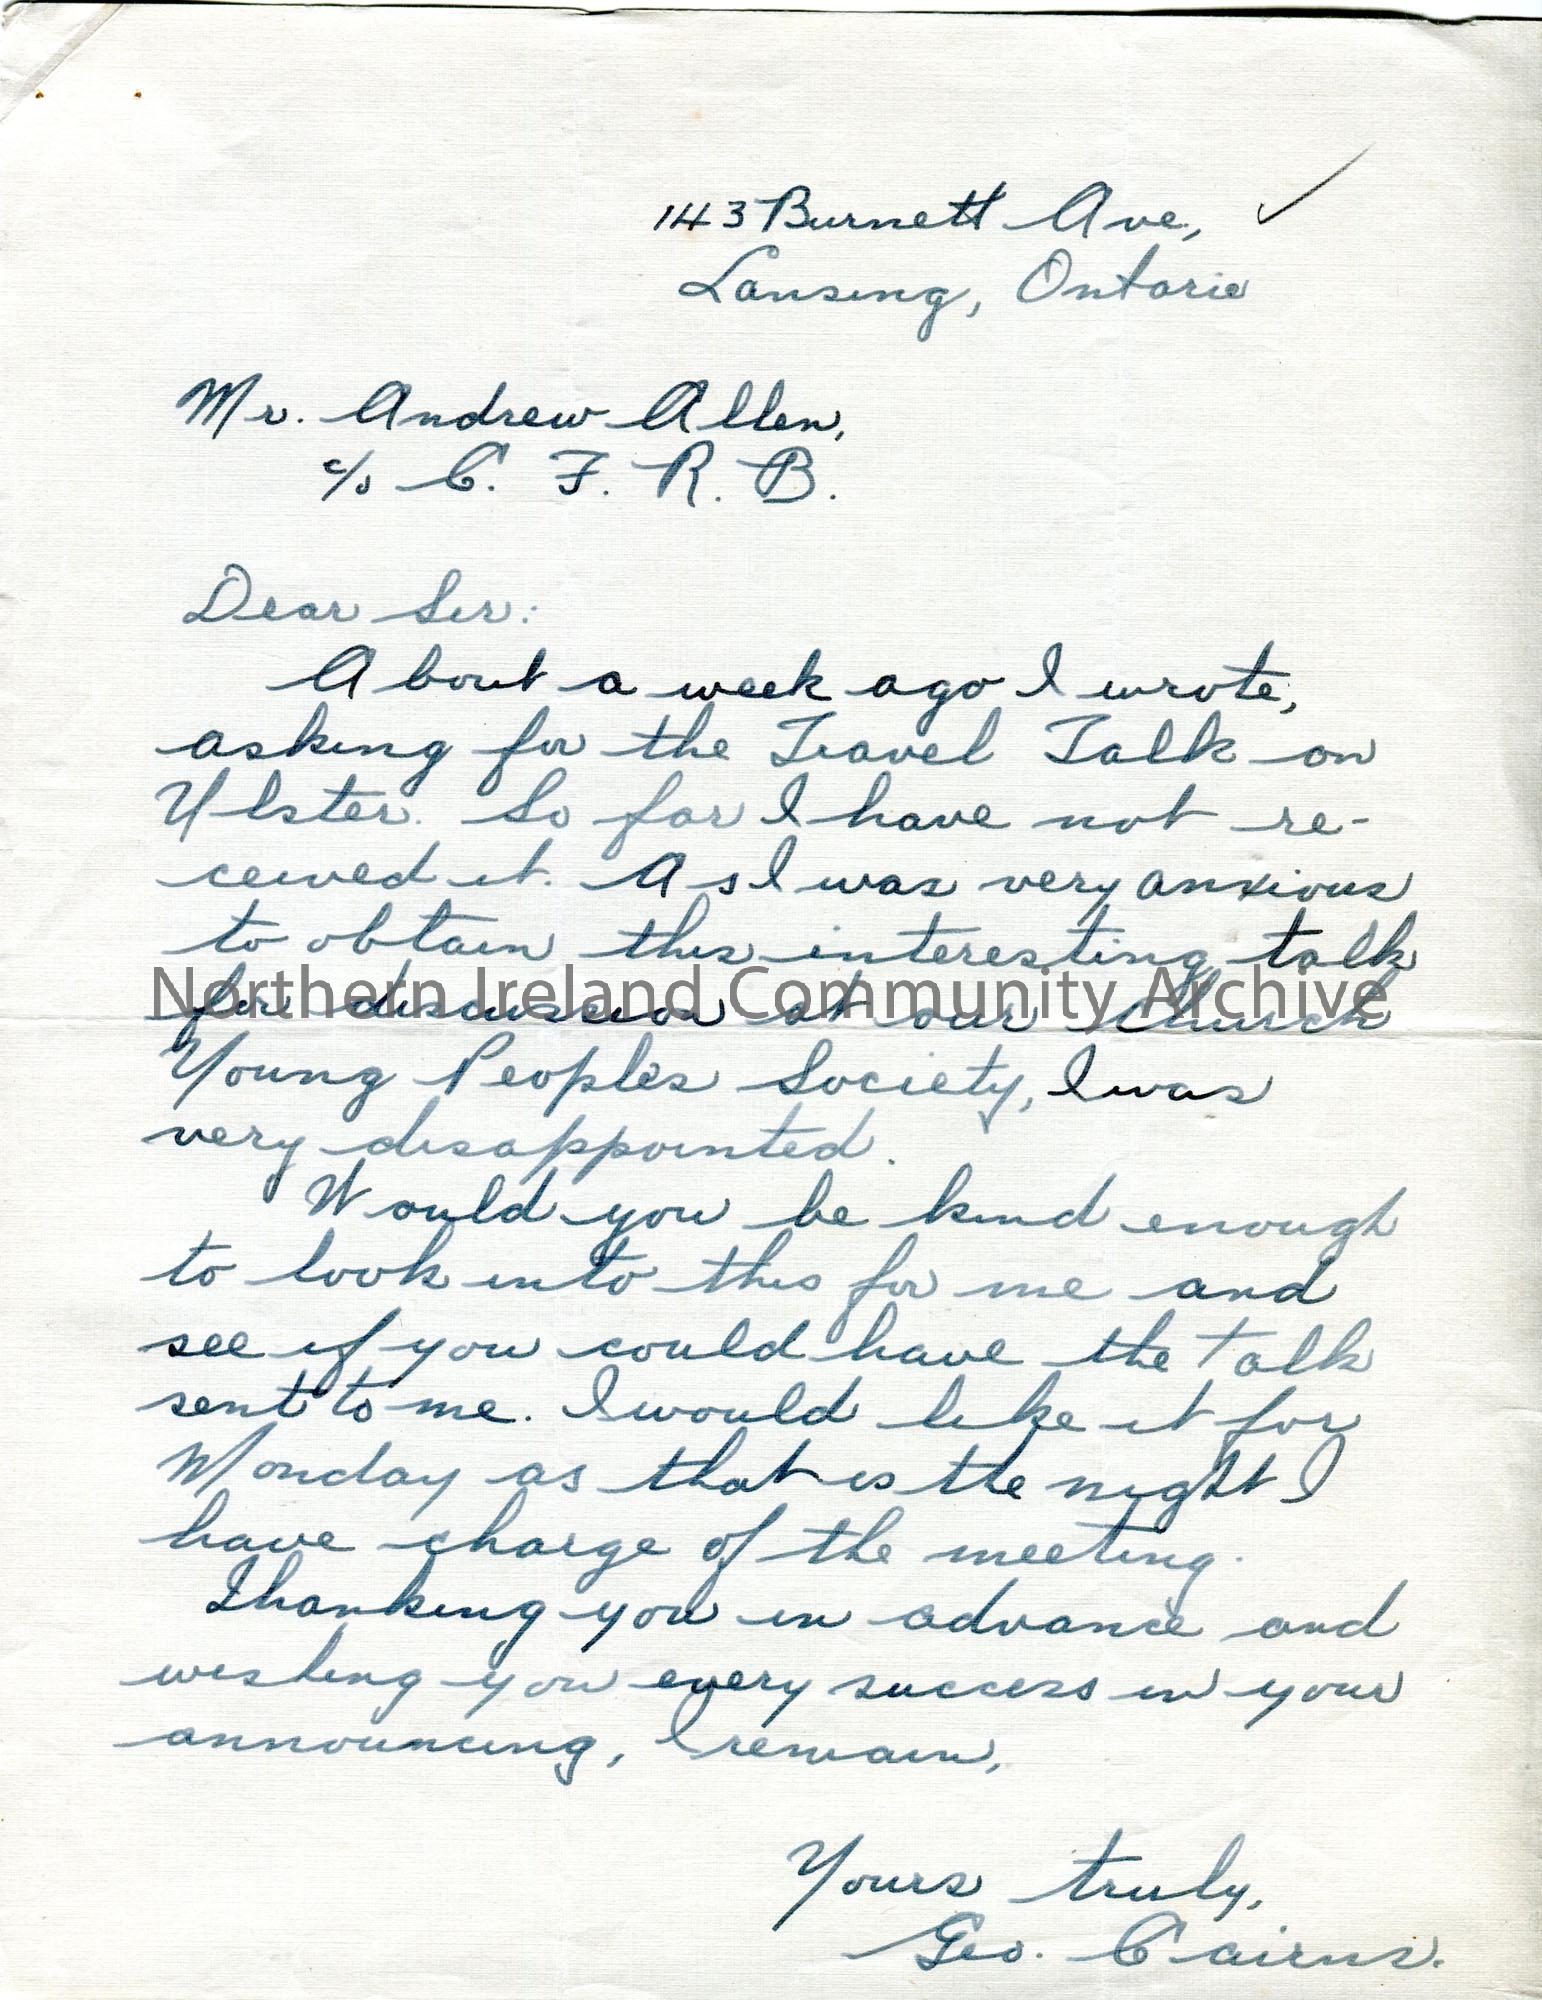 143 Burnett Ave,
Lansing, Ontario
Mr. Andrew Allen,
c/o C. F. R. B.
Dear Sir:
About a week ago I wrote,
asking for the Travel Talk on
Ulster. So far I have not re-
ceived it. As I was very anxious
to obtain this interesting talk
Northern Ireland Community Archive
for discussion at our church
Young Peoples Society, I was
very disappointed.
Would you be kind enough
to look into this for me and
see if you could have the talk
sent to me. I would like it for
Monday as that is the night I
have charge of the meeting.
Thanking you in advance and
wishing you every success in your
announcing, I remain,
Yours truly,
Geo. Cairns.